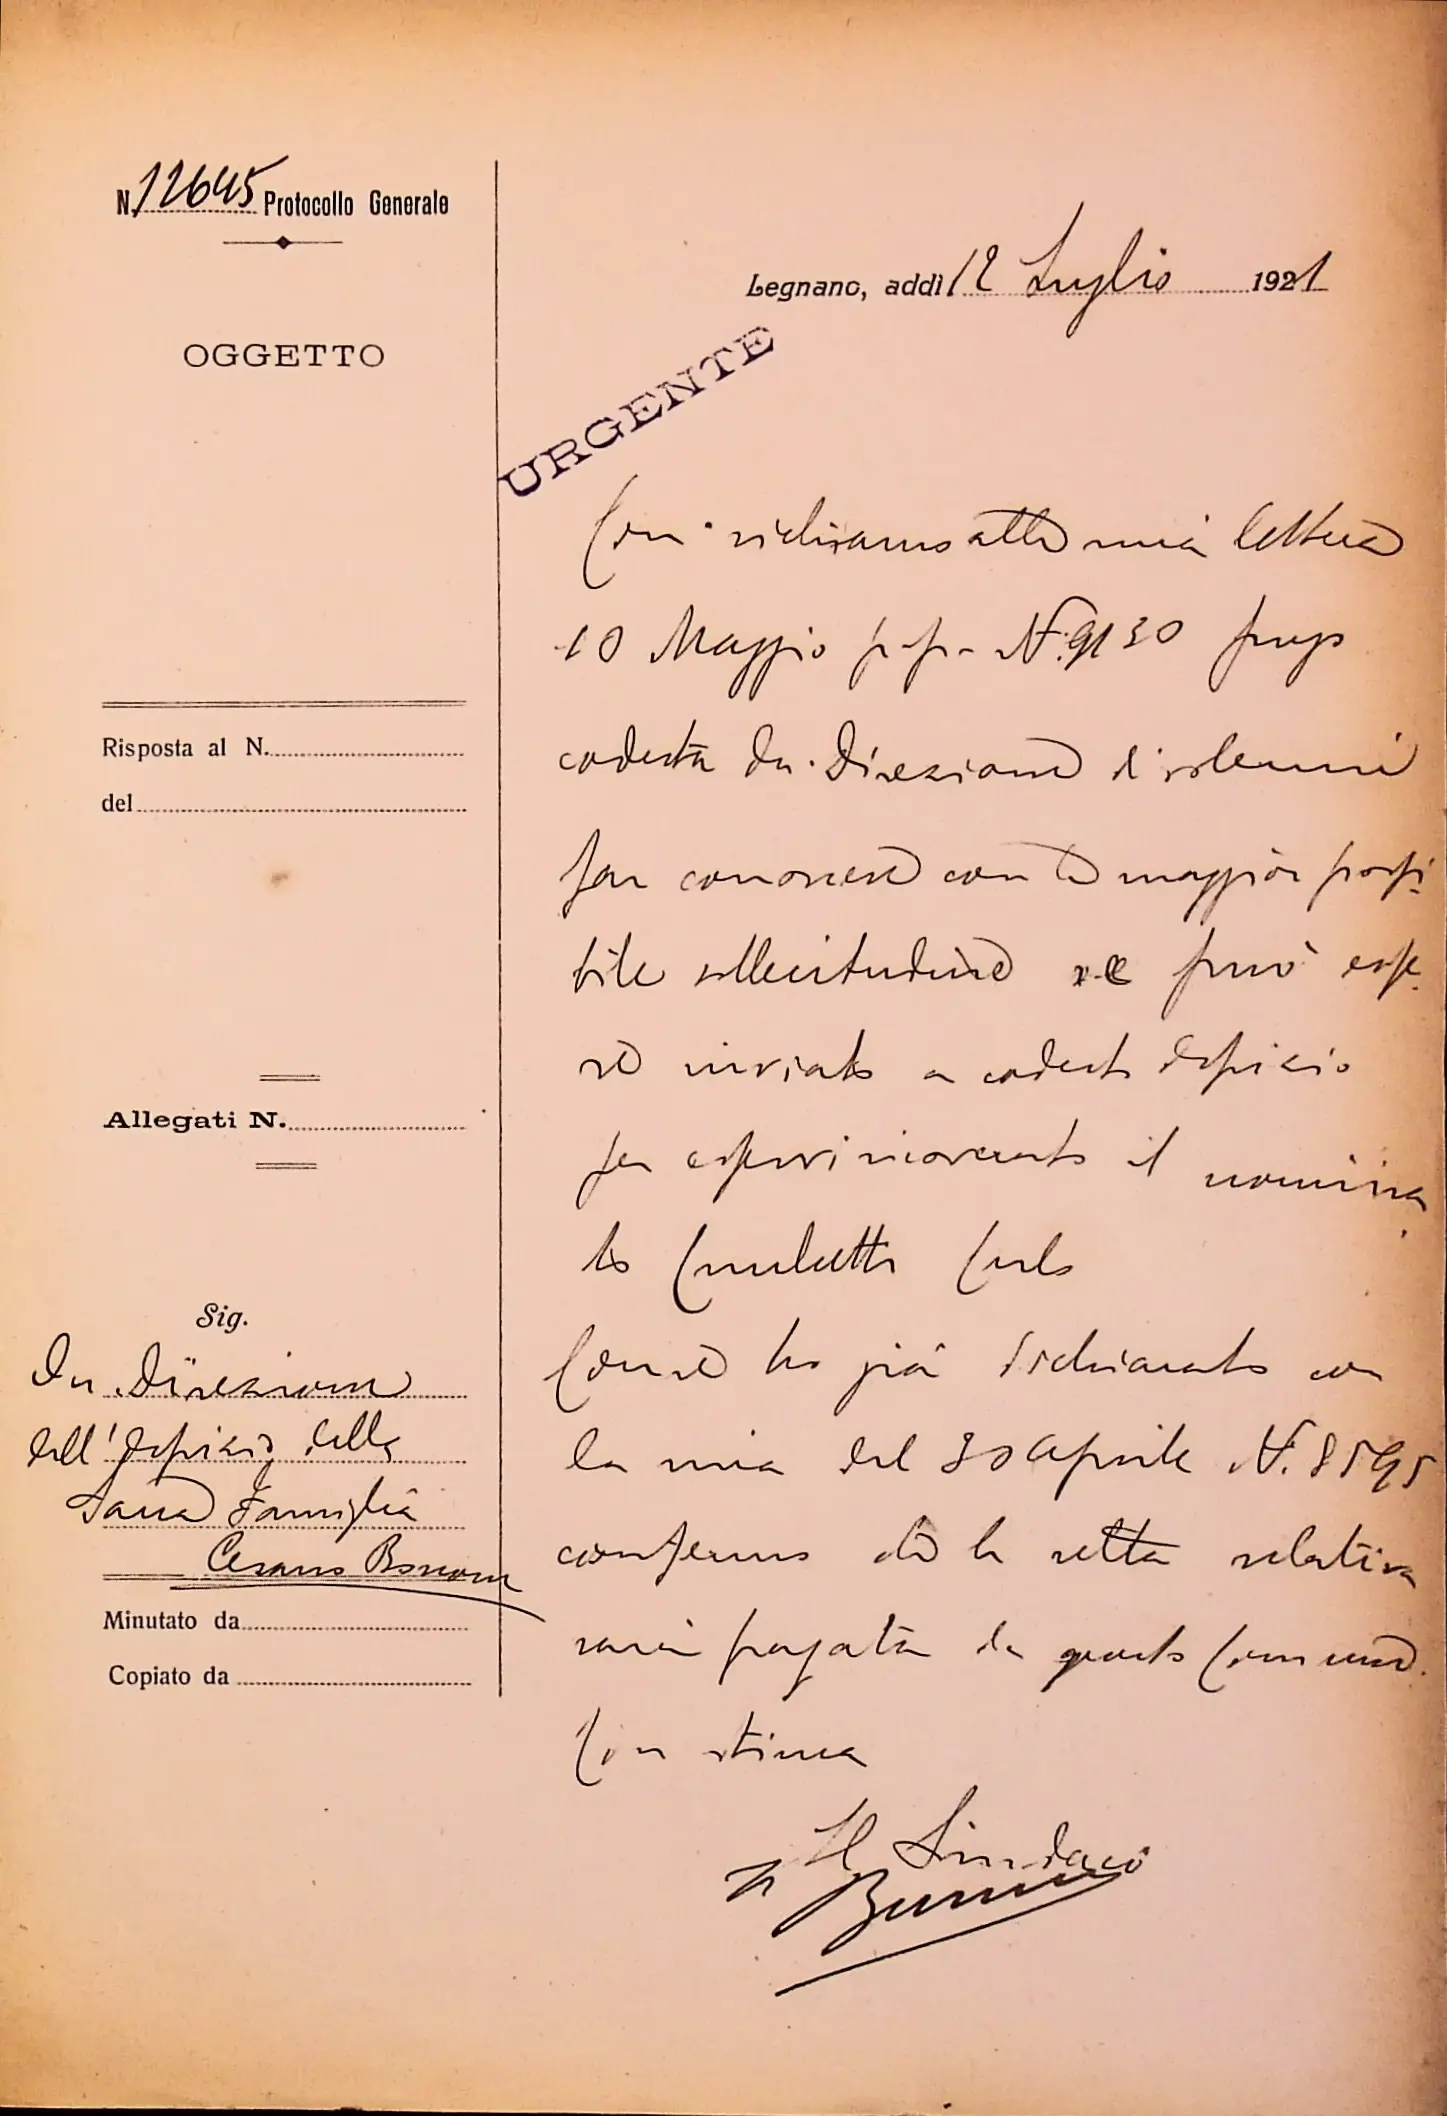 N. 12645 Protocollo Generale
OGGETTO
Risposta al N.
del
Allegati N.
Sig.
On. Direzione
dell'Ospizio della
Sacra Famiglia
Cesano Boscone
Minutato da
Copiato da
Legnano, addì 12 Luglio 1921
URGENTE
Con richiamo alla mia lettera
10 Maggio p.p. N. 9130 prego
codesta On. Direzione di volermi
far conoscere con la maggior possi
bile sollecitudine se può esse
re inviato a codesto Ospizio
per esservi ricoverato il nomina
to Carlo
Come ho già dichiarato con
la mia del 30 Aprile N. 8595
confermo che la retta relativa
sarà pagata da questo Comune.
Con stima
Il Sindaco